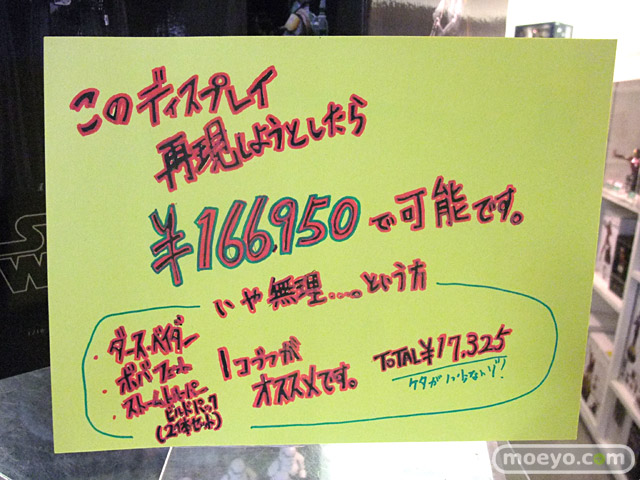 このディスプレイ
再現しようとしたら
¥166950で可能です。
いや無理....。という方
・ダース・ベイダー
・ボバフェット
・ストームトルーパー
ビルドパック
(2体セット)
1コづつが
オススメです。
TOTAL¥17,325
ケタが1つちがいゾ!
moeyo.com